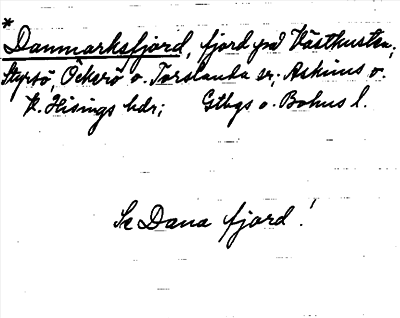 *
Danmarksfjord, fjord på Västkusten;
Styrsö, Öckerö o. Torslanda sr; Askims o.
V. Hisings hdr; Gtbgs o. Bohus l.
Se Dana fjord!